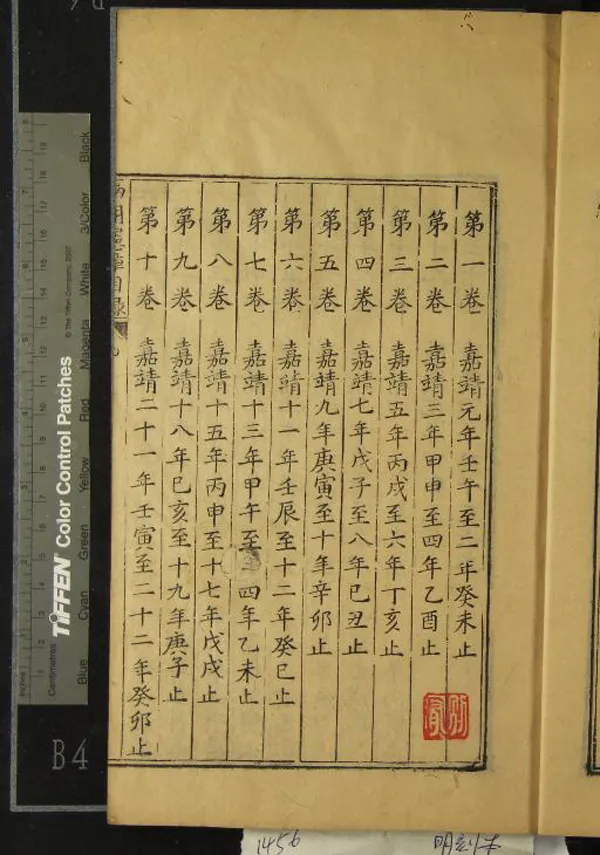 第一卷 嘉靖元年壬午至二年癸未止
第二卷 嘉靖三年甲申至四年乙酉止
第三卷 嘉靖五年丙戌至六年丁亥止
第四卷 嘉靖七年戊子至八年己丑止
第五卷 嘉靖九年庚寅至十年辛卯止
第六卷 嘉靖十一年壬辰至十二年癸巳止
第七卷 嘉靖十三年甲午至 四年乙未止
第八卷 嘉靖十五年丙申至十七年戊戌止
第九卷 嘉靖十八年己亥至十九年庚子止
第十卷 嘉靖二十一年壬寅至二十二年癸卯止
憲章目錄
Inches
Centimetres
TIFFEN Color Control Patches
© The Tiffen Company, 2007
Blue Cyan Green Yellow Red Magenta White 3/Color Black
B4
1456
明刻本